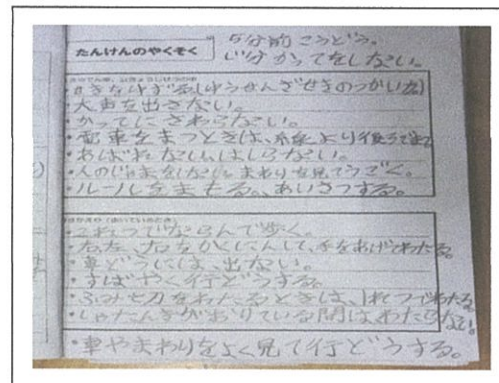 たんけんのやくそく
5分前こうどう。
じ分かってをしない。
せきをゆずる(ゆうせんざせきのつかい方)
大声を出さない。
・かってにさわらない。
・電車をまつときは、線より後ろで
・あばれない。はしらない。
・人のじゃまをしない。まわりを見てうごく。
・ルールをまもる。あいさつする。
・これつでならんで歩く。
・右左、右をかくにんして、手をあげてわたる。
・車どうには、出ない。
・すばやく行どうする。
・ふみ切をわたるときは、1れつでわたる。
・しゃだんきがおりている間はわたらない。
・車やまわりをよく見て行どうする。